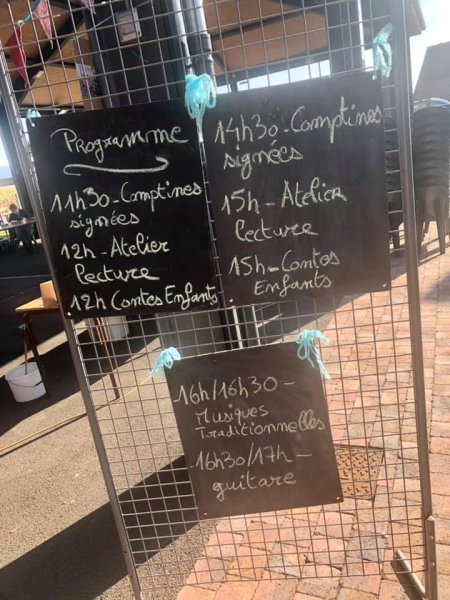 Programme
11h30-Comptines
signées
12h-Atelier
lecture
12h Contes Enfants
14h30-Comptines
signées
15h-Atelier
lecture
15h-Contes
Enfants
16h/16h30-
Musiques
Traditionnelles
16h30/17h-
guitare